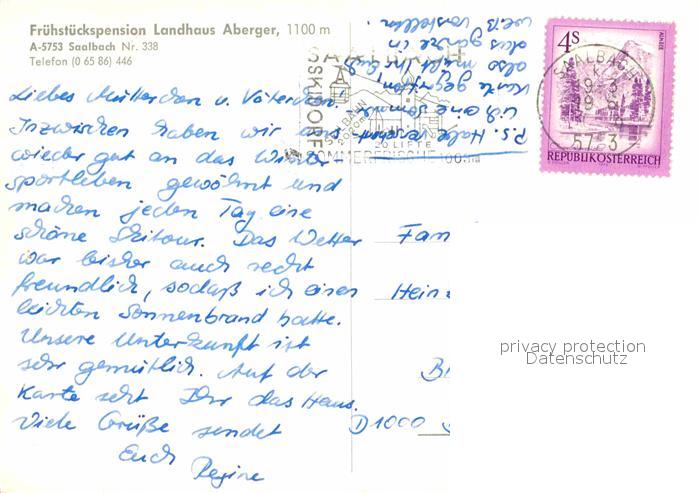 Frühstückspension Landhaus Aberger, 1100 m
A-5753 Saalbach Nr. 338
Telefon (0 65 86) 446
Liebes Mütterchen u. Väterchen!
Inzwischen haben wir uns
wieder gut an das Winter-
sportleben gewöhnt und
machen jeden Tag eine
schöne Skitour. Das Wetter
war bisher auch recht
freundlich, sodaß ich einen
leichten Sonnenbrand hatte.
Unsere Unterkunft ist
sehr gemütlich. Auf der
Karte seht Ihr das Haus.
Viele Grüße sendet
Euch
Regine
P.S. Habe
ich eine Sommer-
karte
also müßt Ihr Euch
das ganze in
weiß vorstellen.
SKIDORF
SAALBACH
20 LIFTE
SOMMERFRISCHE 1003m
4S
REPUBLIK ÖSTERREICH
SAALBACH
5753
Fam
Hein
D 1000
privacy protection
Datenschutz